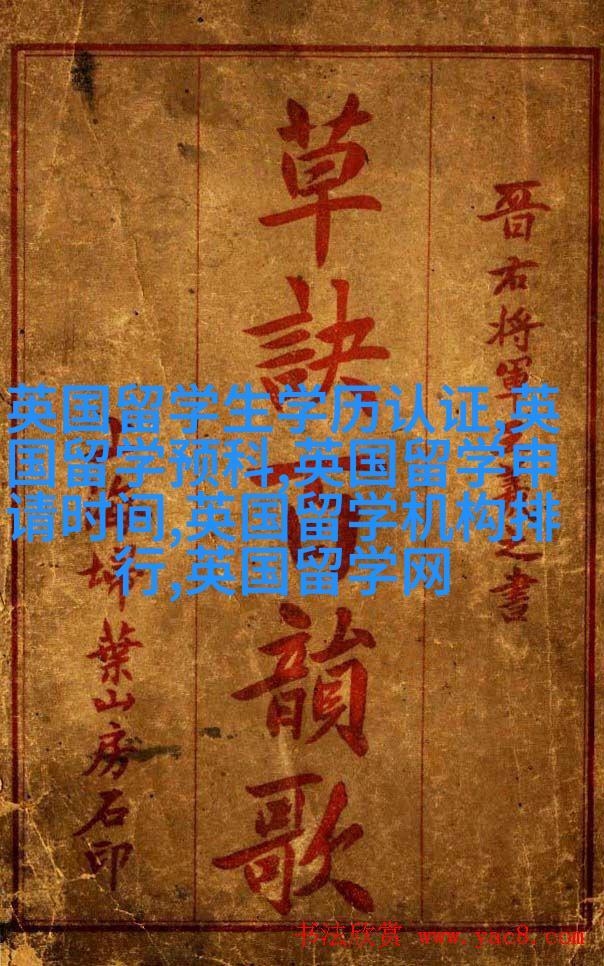 晋右将軍王羲之書
草訣百韻歌
上海掃葉山房石印
英国留学生学历认证,英
国留学预科,英国留学申
请时间,英国留学机构排
行,英国留学网
书法欣赏 www.yac8.com